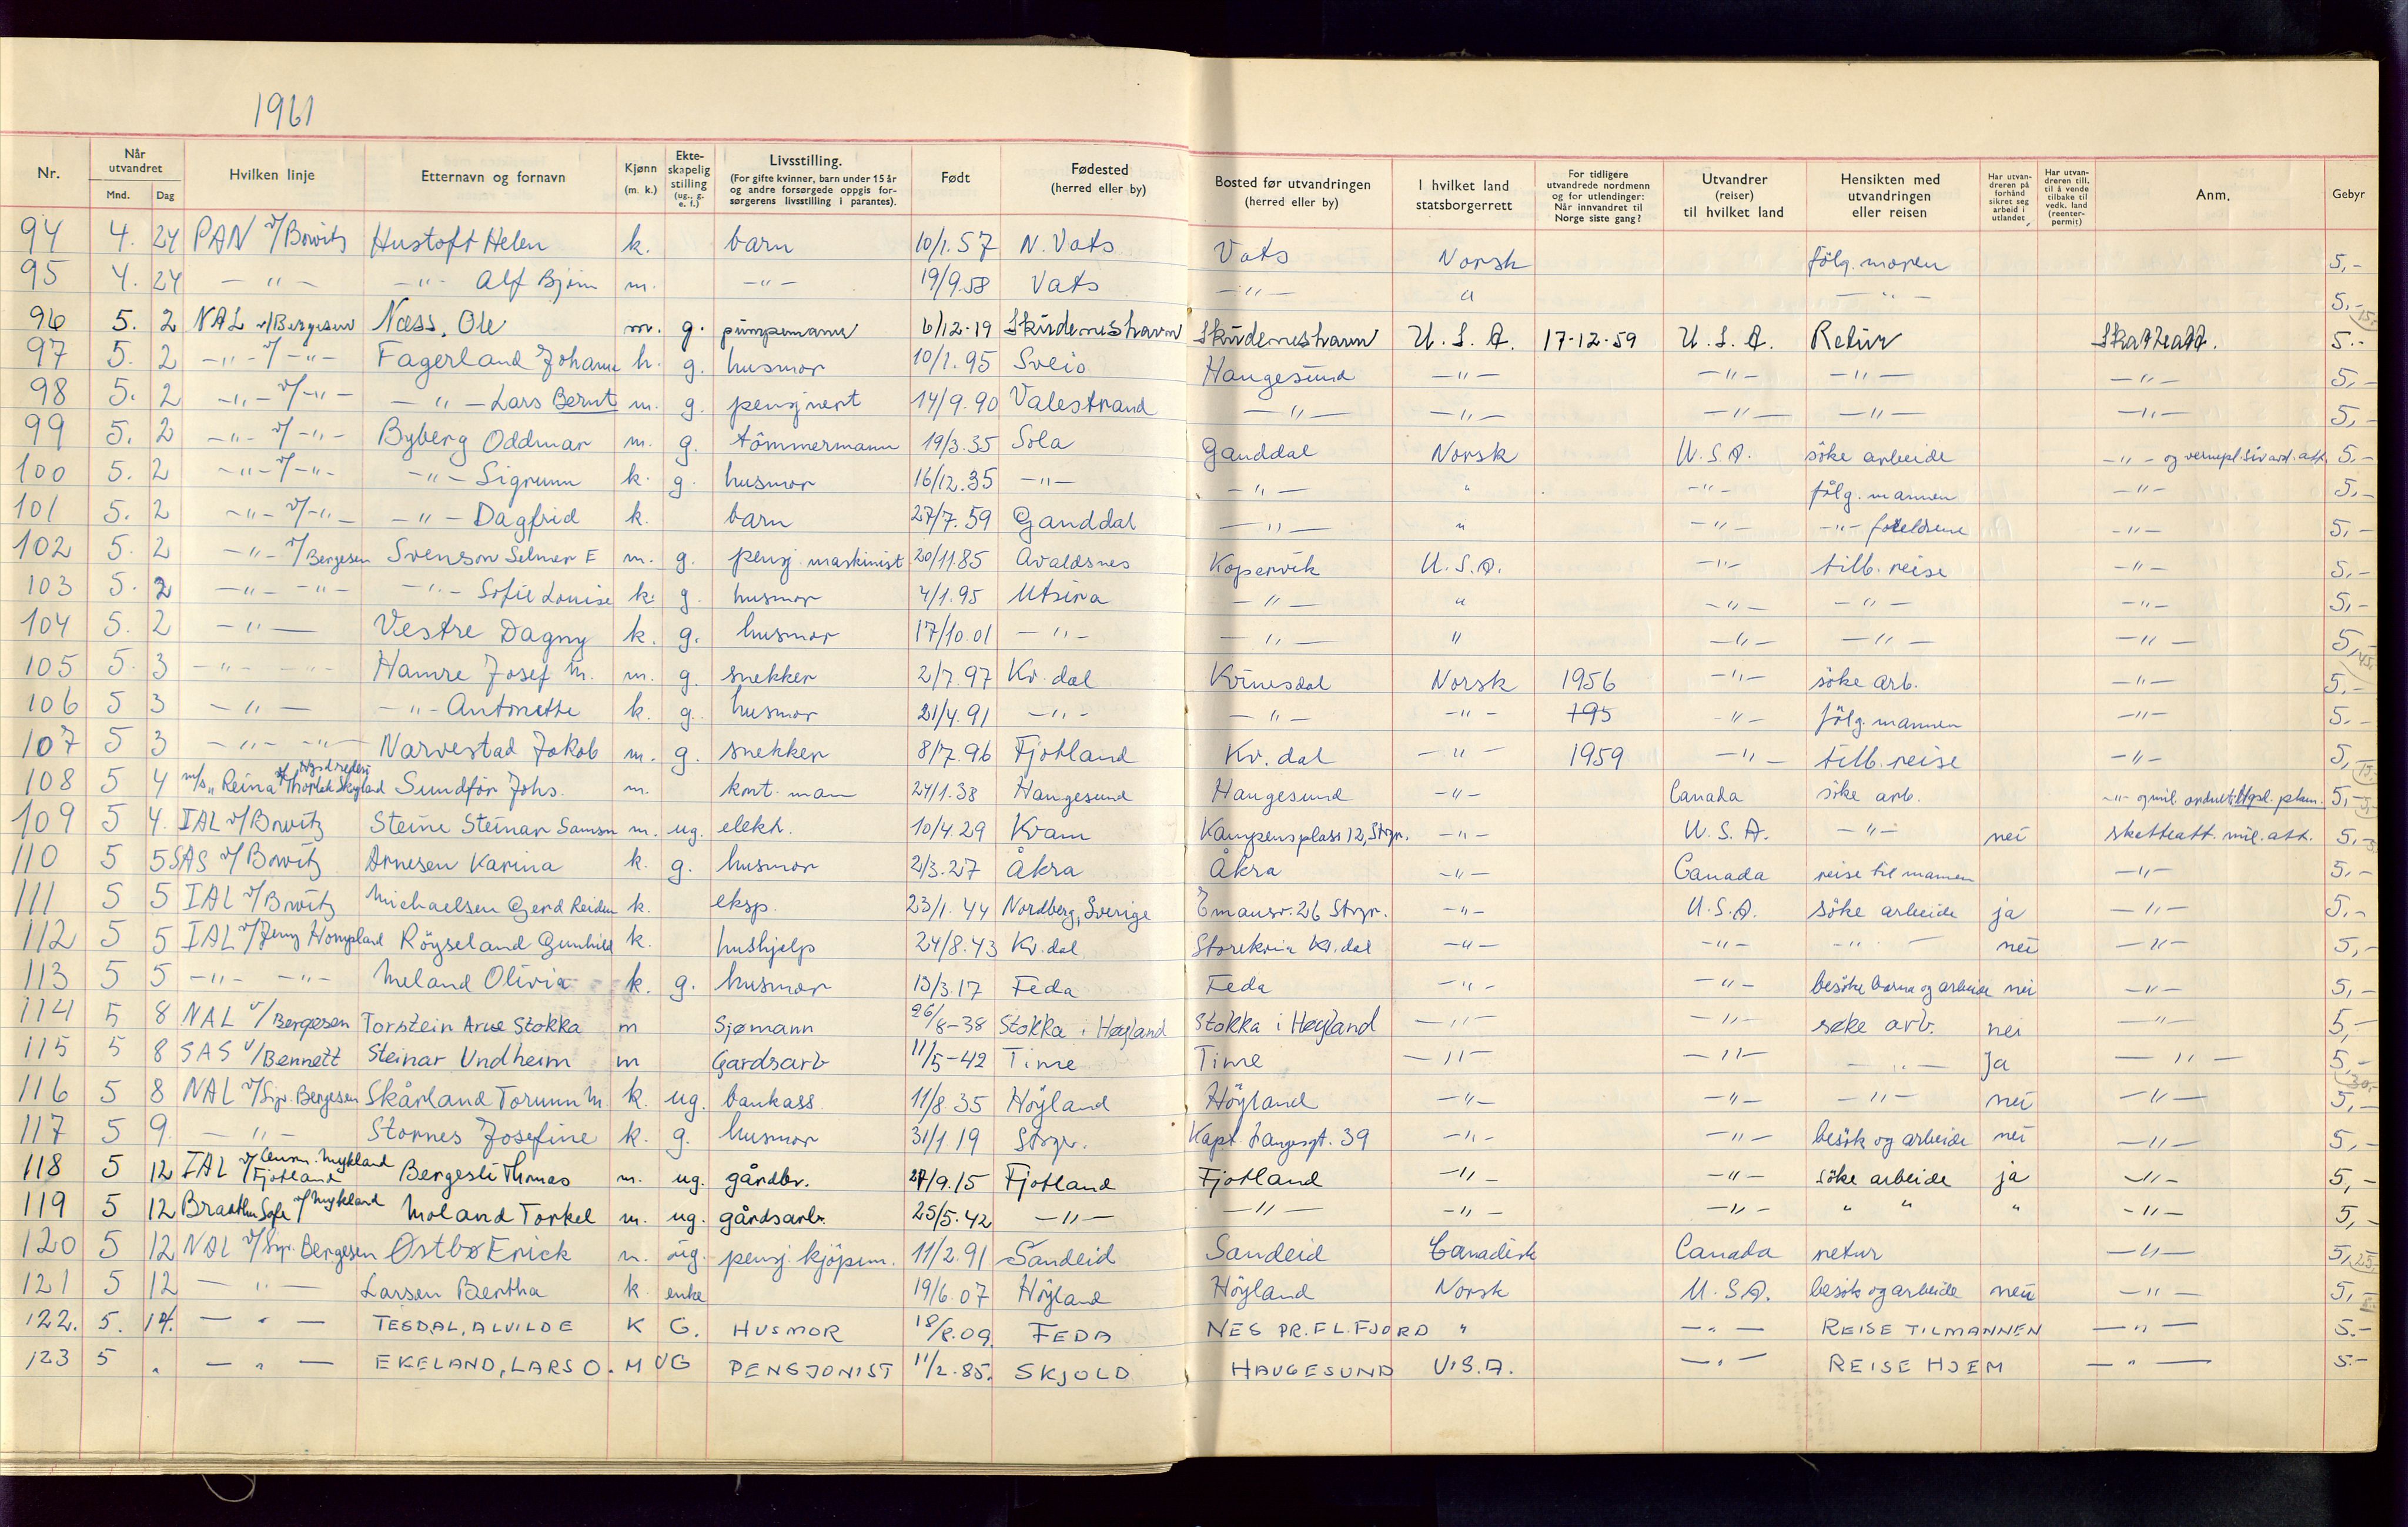 1961
Nr. Når utvandret Mnd. Dag Hvilken linje Etternavn og fornavn Kjønn (m. k.) Ekteskapelig stilling (ug., g. e. f.) Livsstilling. (For gifte kvinner, barn under 15 år og andre forsørgede oppgis forsørgerens livsstilling i parantes). Født Fødested (herred eller by) Bosted før utvandringen (herred eller by) I hvilket land statsborgerrett For tidligere utvandrede nordmenn og for utlendinger: Når innvandret til Norge siste gang? Utvandrer (reiser) til hvilket land Hensikten med utvandringen eller reisen Har utvandreren på forhånd sikret seg arbeid i utlandet Har utvandreren till. til å vende tilbake til vedk. land (reenterpermit) Anm. Gebyr
94 4. 24 PAN v/Bowitz Hustoft Helen k. barn 10/1.57 N. Vats Vats Norsk følg. moren 5,-
95 4. 24 -"- -"- Alf Bjørn m. -"- 19/9.58 Vats -"- " -"- 5,-
96 5. 2 NAL v/Bergesen Næss, Ole m. g. pumpemann 6/12-19 Skudeneshavn Skudeneshavn U.S.A. 17-12-59 U.S.A. Retur Skatteatt. 5.-
97 5. 2 -"- v/-"- Fagerland Johanne k. g. husmor 10/1.95 Sveio Haugesund -"- -"- -"- -"- 5,-
98 5. 2 -"- v/-"- -"- Lars Bernt m. g. pensjnert 14/9.90 Valestrand -"- -"- -"- -"- -"- 5,-
99 5. 2 -"- v/-"- Byberg Oddmar m. g. tömmermann 19/3.35 Sola Ganddal Norsk U.S.A. söke arbeide -"- og vernepl. siv ard. att. 5,-
100 5. 2 -"- v/-"- -"- Sigrunn k. g. husmor 16/12.35 -"- -"- " -"- fölg. mannen -"- 5,-
101 5. 2 -"- v/-"- -"- Dagfrid k. barn 27/7.59 Ganddal -"- " -"- -"- foreldrene -"- 5,-
102 5. 2 -"- v/Bergesen Svenson Selmer E m. g. pensj. maskinist 20/11.85 Avaldsnes Kopervik U.S.A. -"- tilb. reise -"- 5,-
103 5. 2 -"- -"- -"- Sofie Louise k. g. husmor 4/1.95 Utsira -"- " -"- -"- -"- 5,-
104 5. 2 -"- Vestre Dagny k. g. husmor 17/10.01 -"- -"- " -"- -"- -"- 5,- 45,-
105 5. 3 -"- -"- Hamre Josef M. m. g. snekker 2/7.97 Kv. dal Kvinesdal Norsk 1956 -"- söke arb. -"- 5,-
106 5 3 -"- -"- Antonette k. g. husmor 21/4.91 -"- -"- -"- 195 -"- fölg. mannen -"- 5.-
107 5 3 -"- -"- Narvestad Jakob m. g. snekker 8/7.96 Fjotland Kv. dal -"- 1959 -"- tilb. reise -"- 5,- 15,-
108 5 4 m/s "Reina" v/Thorlak Skogland Sundför Johs. m. knt. man 24/1.38 Haugesund Haugesund -"- Canada söke arb. 5,-
109 5 4. IAL v/Bowitz Steine Steinar Samson m. ug. elekt. 10/4.29 Kvam Kampensplass 12, Stvgr. -"- U.S.A. -"- nei skatteatt. mil. att. 5,-
110 5 5 SAS v/Bowitz Arnesen Karina k. g. husmor 2/3.27 Åkra Åkra -"- Canada reise til mannen -"- 5,-
111 5 5 IAL v/Bowitz Michaelsen Gerd Reidun k. eksp. 23/1.44 Nordberg, Sverige Emausv. 26 Stvgr. -"- U.S.A. söke arbeide ja -"- 5,-
112 5 5 IAL v/Jenny Hompland Röyseland Gunhild k. hushjelp 24/8.43 Kv. dal Storekvin Kv. dal -"- -"- -"- nei -"- 5,-
113 5 5 -"- -"- Meland Olivia k. g. husmor 13/3.17 Feda Feda -"- -"- besöke barna og arbeide nei -"- 5,-
114 5 8 NAL v/Bergesen Torstein Arne Stokka m Sjømann 26/8-38 Stokka i Høyland Stokka i Høyland -"- -"- søke arb. nei -"- 5,-
115 5 8 SAS v/Bennett Steinar Undheim m Gardsarb 11/5-42 Time Time -"- -"- -"- Ja -"- 5,- 30,-
116 5 8 NAL v/Sigv. Bergesen Skårland Torunn M. k. ug. bankass. 11/8.35 Höyland Höyland -"- -"- -"- nei -"- 5,-
117 5 9. -"- Stornes Josefine k. g. husmor 31/1 19 Stvgr. Kapt. Langesgt. 39 -"- -"- besök og arbeide nei -"- 5,-
118 5 12 IAL v/ Mykland Fjotland Bergesli Thomas m. ug. gårdbr. 27/9.15 Fjotland Fjotland -"- -"- söke arbeide ja -"- 5,-
119 5 12 Braathen Safe v/Mykland Moland Torkel m. ug. gårdsarb. 25/5.42 -"- -"- -"- -"- " " " -"- 5,-
120 5 12 NAL v/Sigv. Bergesen Østbø Erick m. ug. pensj. kjöpm. 11/2.91 Sandeid Sandeid Canadisk Canada retur -"- 5,- 25,-
121 5 12 -"- Larsen Bertha k. enke 19/6.07 Höyland Höyland Norsk U.S.A. besök og arbeide nei -"- 5,-
122. 5. 14. -"- TESDAL, ALVILDE K G. HUSMOR 18/8.09 FEDA NES PR. FL. FJORD " -"- REISE TIL MANNEN -"- 5.-
123 5 " -"- EKELAND, LARS O. M UG PENSJONIST 11/2.85. SKJOLD HAUGESUND U.S.A. -"- REISE HJEM -"- 5.-